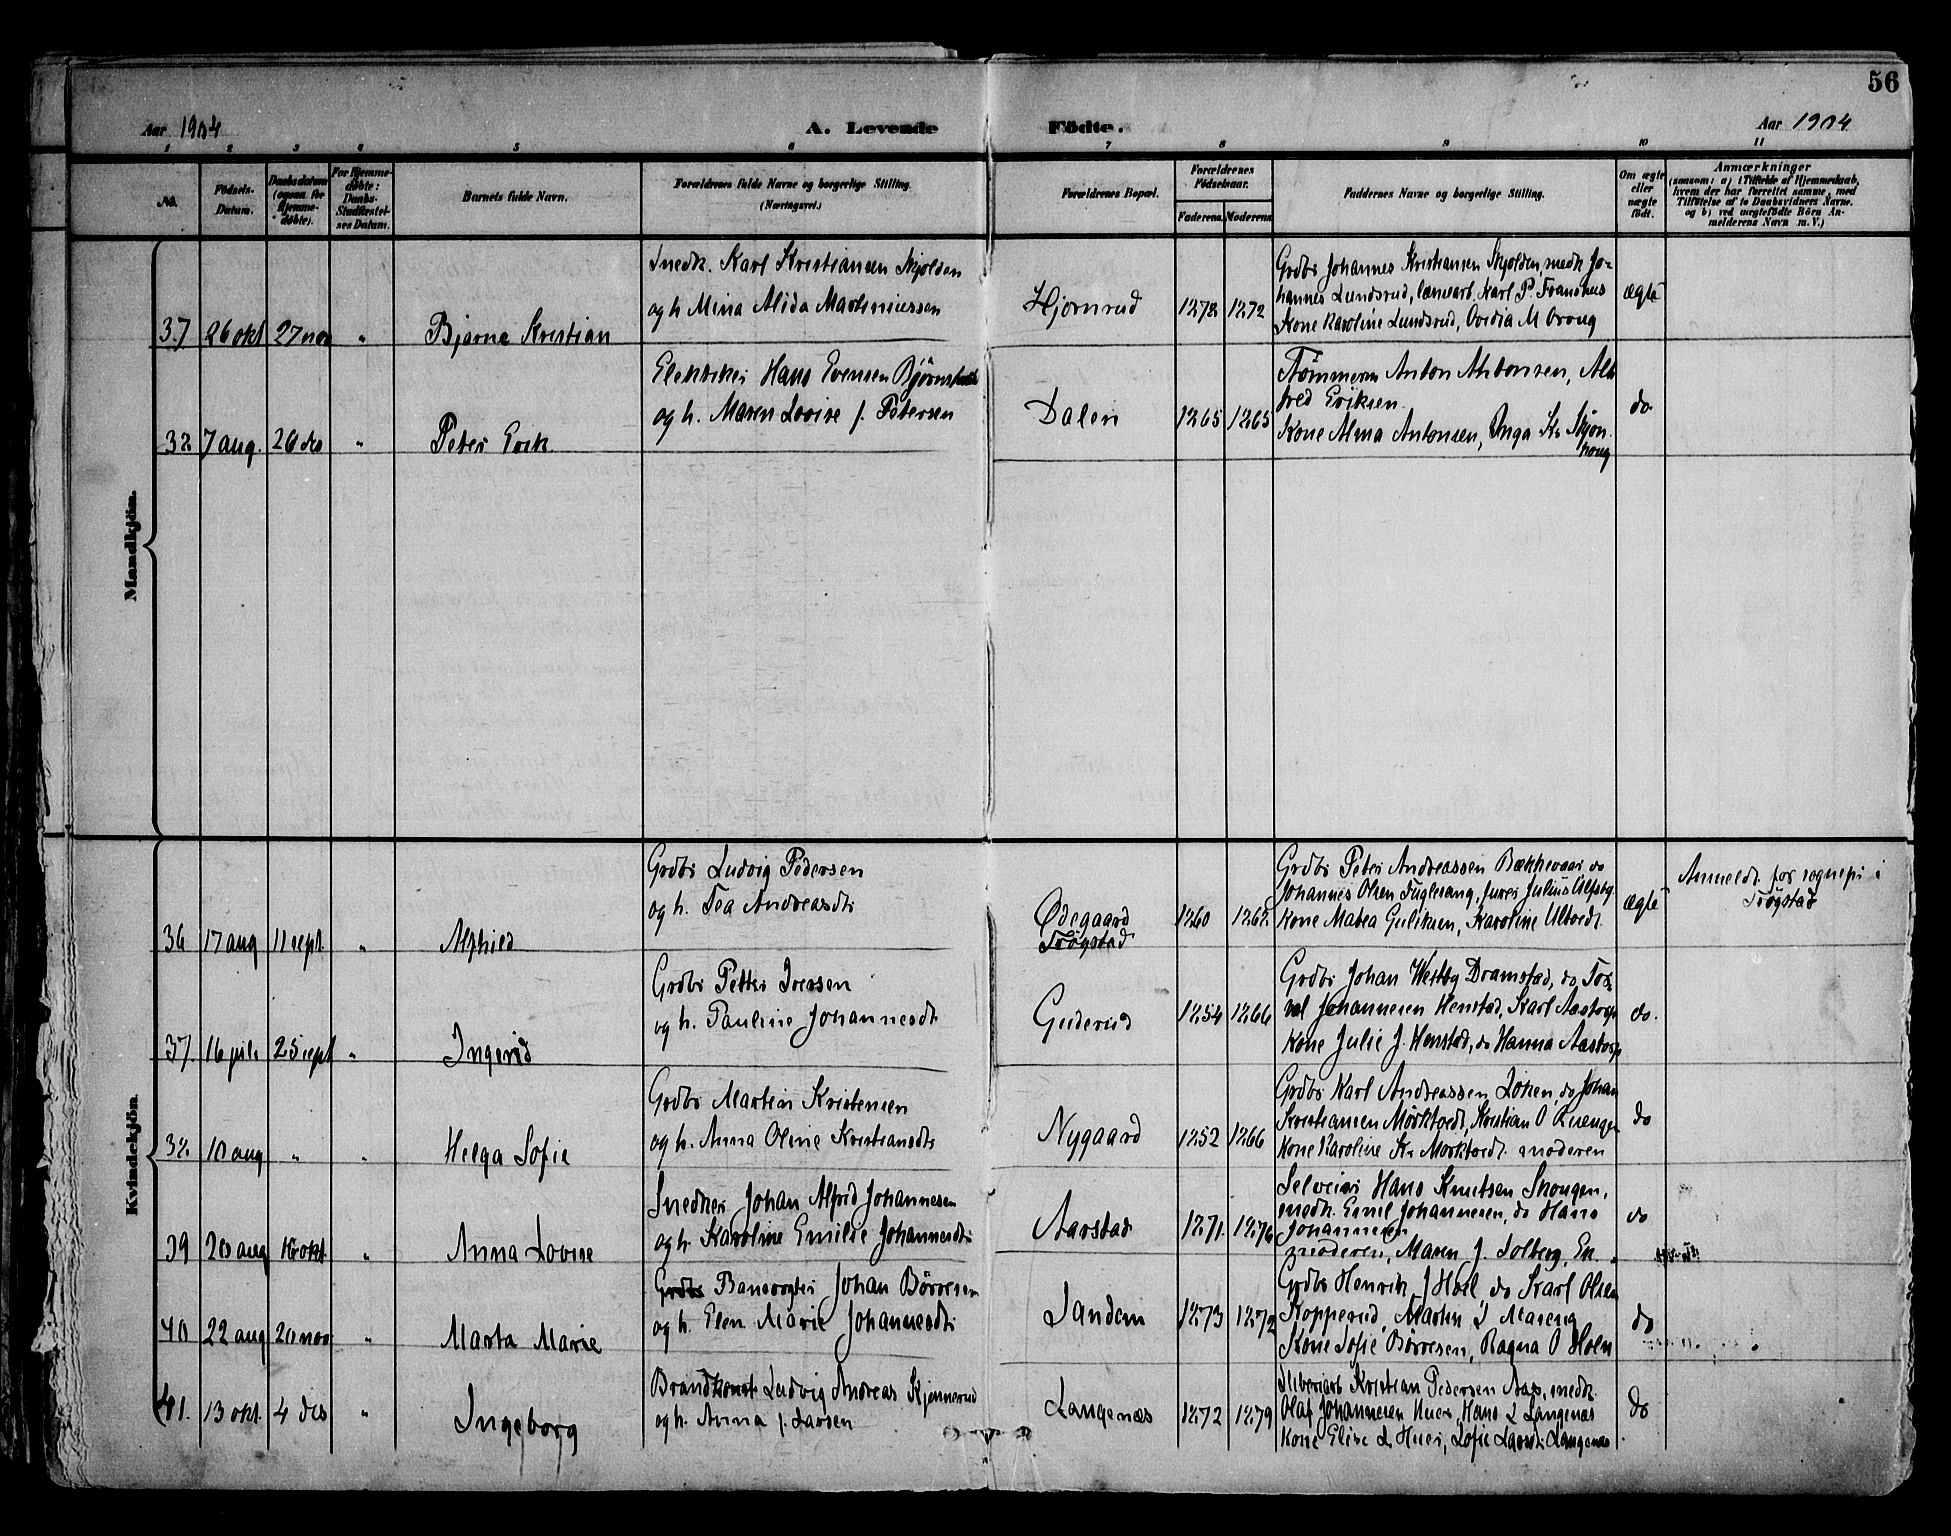 56
Aar 1904 A. Levende Födte. Aar 1904
1 2 3 4 5 6 7 8 9 10 11
No.
Födsels-Datum.
Daabsdatum (ogsaa for Hjemme-døbte).
For Hjemme-døbte: Daabs-Stadfæstel-ses Datum.
Barnets fulde Navn.
Forældrenes fulde Navne og borgerlige Stilling.
(Næringsvei.)
Forældrenes Bopæl.
Forældrenes Födselsaar.
Faderens. Moderens.
Faddernes Navne og borgerlige Stilling.
Om ægte eller uægte født.
Anmærkninger
(saasom: a) i Tilfælde af Hjemmedaab,
hvem der har forrettet samme, med
Tilføielse af to Daabsvidners Navne.
og b) ved uægtefödte Börn An-
melderens Navn m. V.)
Mandkjön.
Snedk. Karl Kristiansen Skjolden
og h. Mina Alida Martiniussen
37 26 okt 27 nov " Bjarne Kristian
Hjørnrud 1878 1872
Grdbr Johannes Kristiansen Skjolden, snedk Jo-
hannes Lundsrud, Karl P.
Kone Karoline Lundsrud, Ovidia M Brong
ægte
Elektriker Hans Evensen
og h. Maren Lovise f. Petersen
38 7 aug. 26 do " Peter Erik.
Dalen 1865 1865
Tømmerm Anton Antonsen, Alf
red Eriksen.
Kone Alma Antonsen, Inga Kr Skjøn
houg
do
Kvindekjön.
Grdbr Ludvig Pedersen
og h. Tea Andreasdtr
36 17 aug 11 sept. " Alphild
Ødegaard
Trøgstad
1860 1862.
Grdbr Peter Andreassen Bækkevaar do
Johannes Olsen Fuglesang, Julius
Kone Matea Guliksen, Karoline
ægte
Anmeldt for sognepr i
Trøgstad
Grdbr Petter Iversen
og h. Pauline Johannesdt.
37. 16 juli 25 sept " Ingerid
Guderud 1854 1866
Grdbr Johan Westby Dramstad, do Tor
val Johannesen Henstad, Karl Aastorp
Kone Julie J. Henstad, do Hanna Aastorp
do.
Grdbr Martin Kristensen
og h. Anna Oline Kristiansdtr
38. 10 aug " " Helga Sofie
Nygaard 1852 1866
Grdbr Karl Andreassen Løken, do Johan
Kristiansen Mørktvedt, Kristian O
Kone Karoline Kr Morktvedt. moderen
do
Snedker Johan Alfred Johannesen
og h. Karoline Emilie Johannesdtr
39 20 aug 16 okt " Anna Lovise
Aarstad 1871. 1876
Selveier Hans Knutsen Skougen,
snedk. Emil Johannesen, do Hans
Johannesen
moderen, Maren J. Solberg, En.
do
Grdbr Banevogter Johan Børresen
og h. Elen Marie Johannesdtr
40 22 aug 20 nov " Marta Marie
Sandem 1873 1872
Grdbr Henrik J Hoel do Karl Olsen
Kopperud, Martin J
Kone Sofie Børresen, Ragna O Holm
do
Brandkonst Ludvig Andreas Kjennerud
og h. Anna f. Larsen
41. 13 okt. 4 des " Ingeborg
Langenæs 1872 1879
Sliberiarb Kristian Pedersen Aas, snedk
Olaf Johannesen Huer, Hans L Langenæs
Kone Elise L Huer, Sofie Larsdtr Langenæs
do